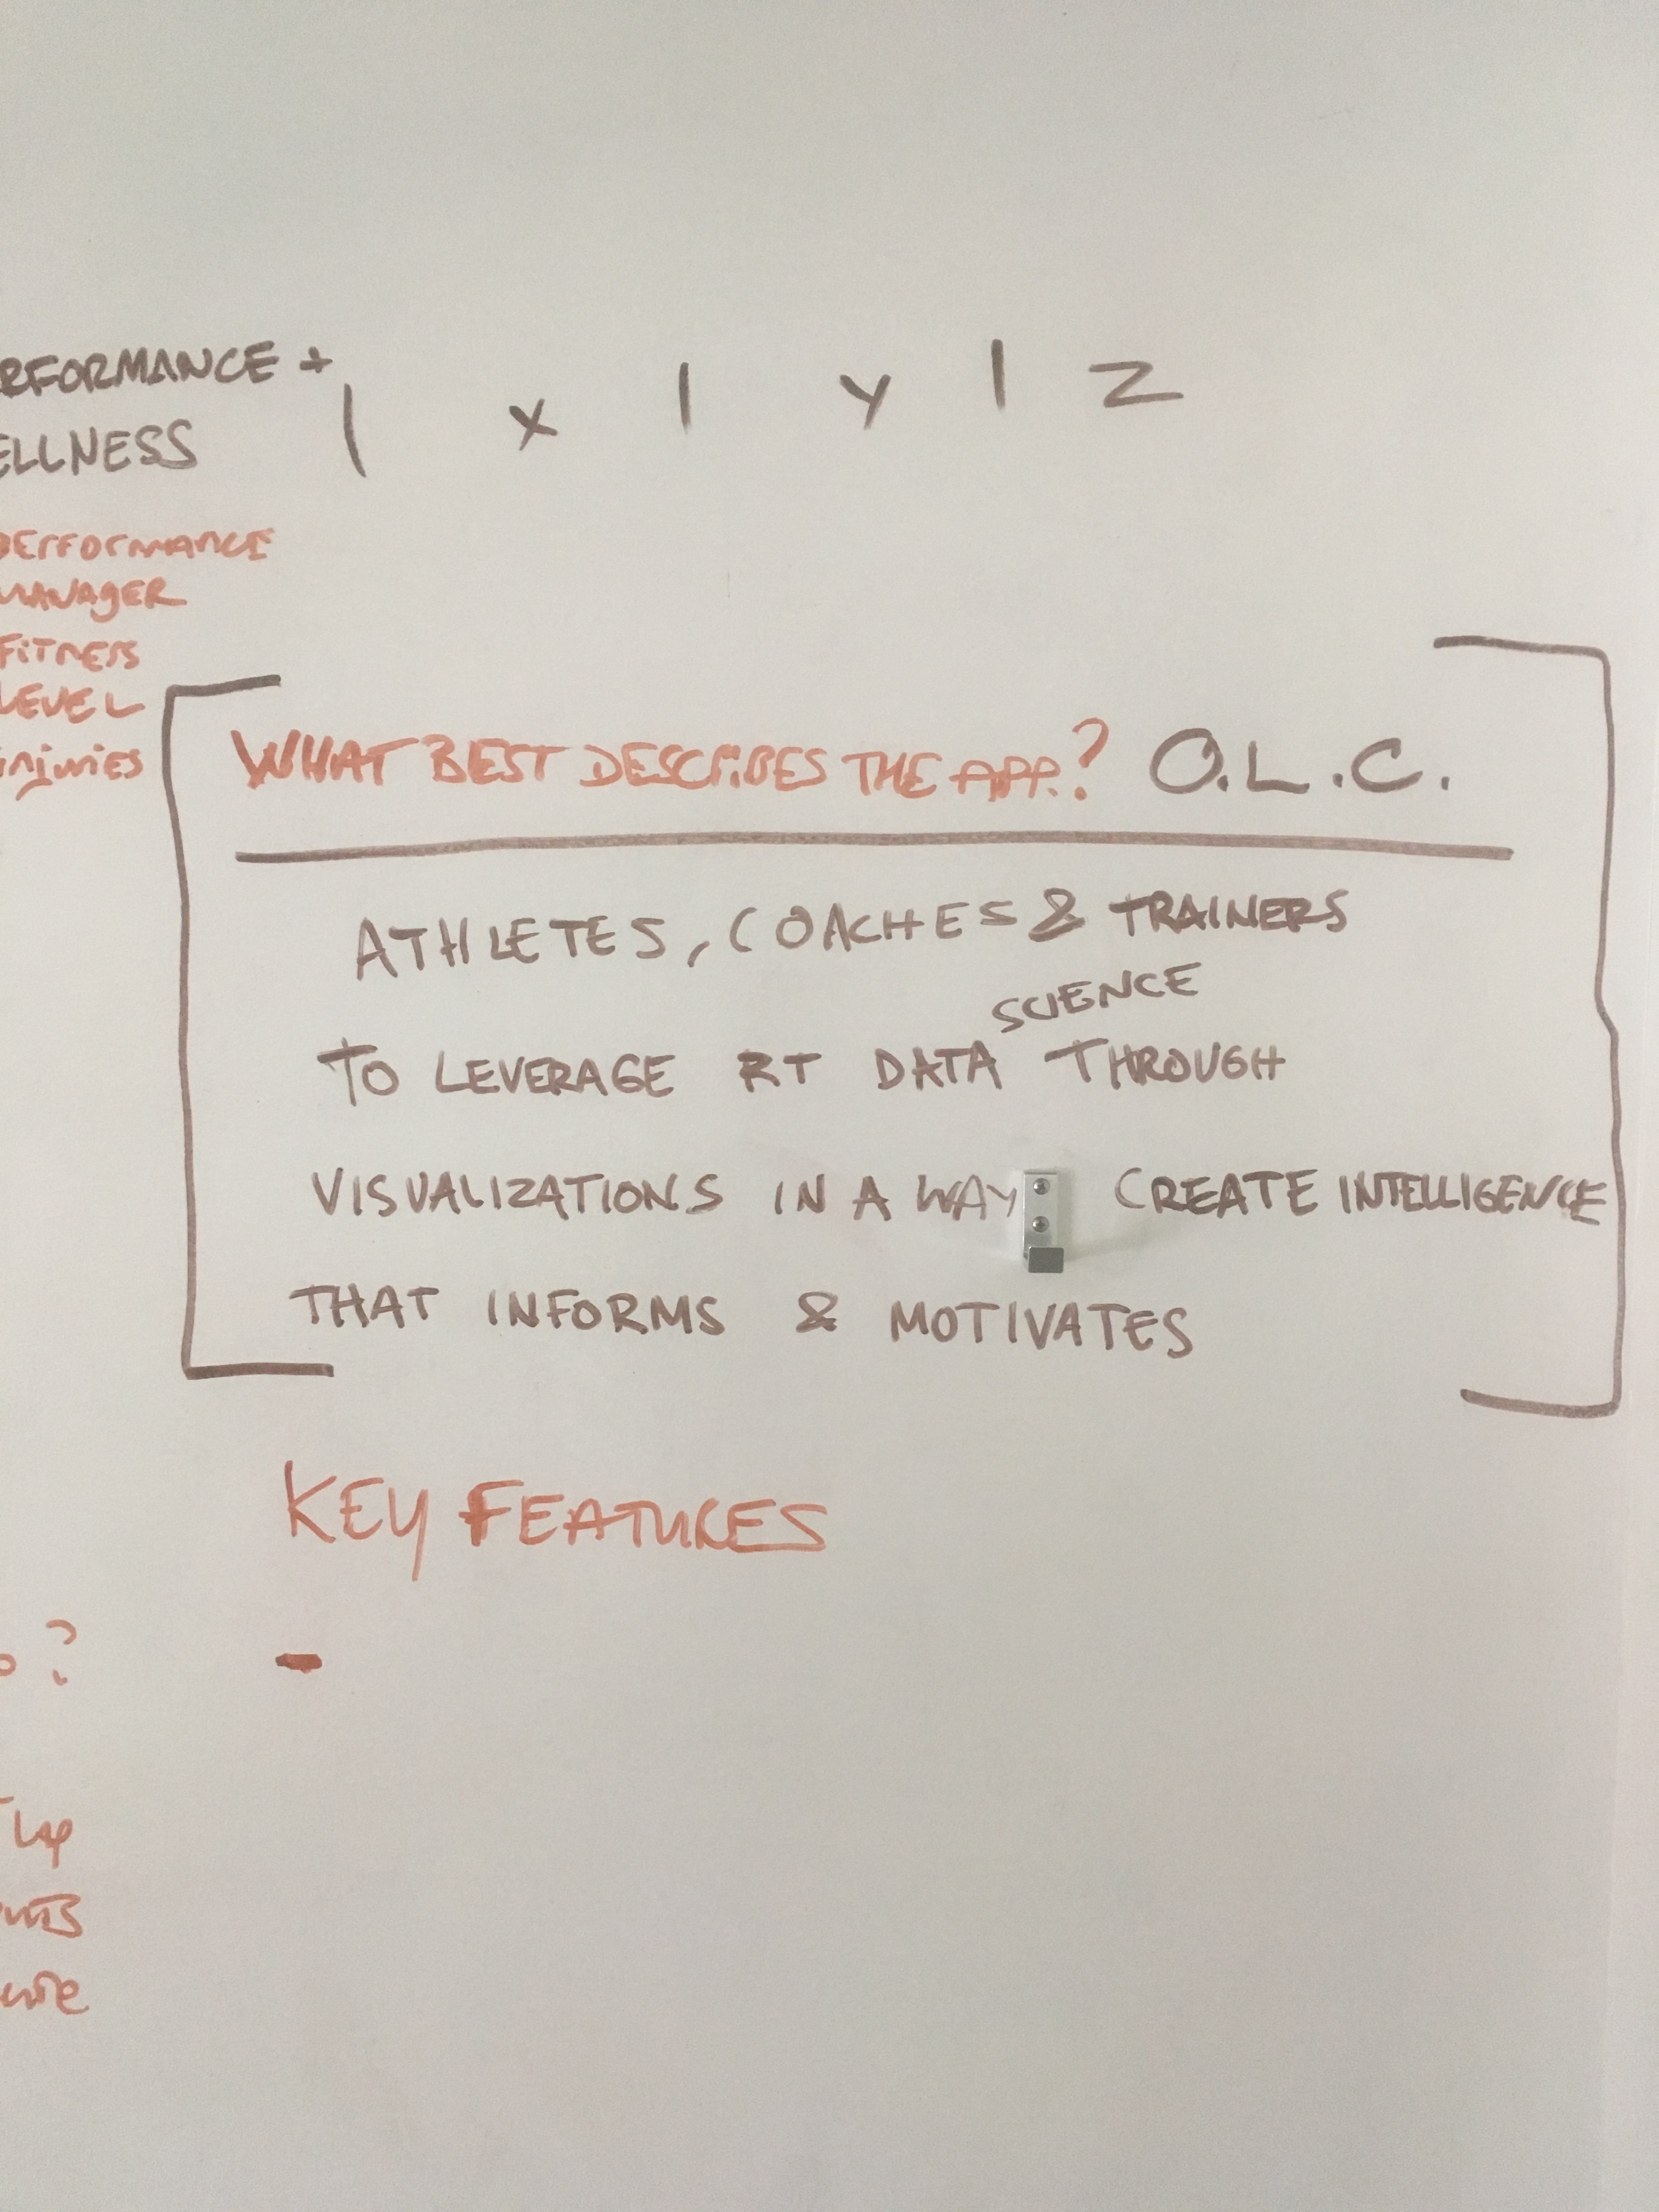 RFORMANCE +
ELLNESS
| X | Y | Z
PERFORMANCE
MANAGER
FITNESS
LEVEL
injuries
WHAT BEST DESCRIBES THE APP.? O.L.C.
ATHLETES, COACHES & TRAINERS
SCIENCE
TO LEVERAGE RT DATA THROUGH
VISUALIZATIONS IN A WAY CREATE INTELLIGENCE
THAT INFORMS & MOTIVATES
KEY FEATURES
?
-